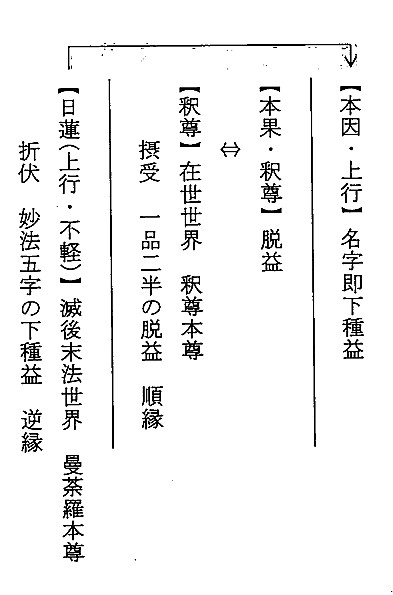 【本因・上行】名字即下種益
【本果・釈尊】脱益
⇔
【釈尊】在世世界　釈尊本尊
摂受　一品二半の脱益　順縁
【日蓮(上行・不軽)】滅後末法世界　曼荼羅本尊
折伏　妙法五字の下種益　逆縁